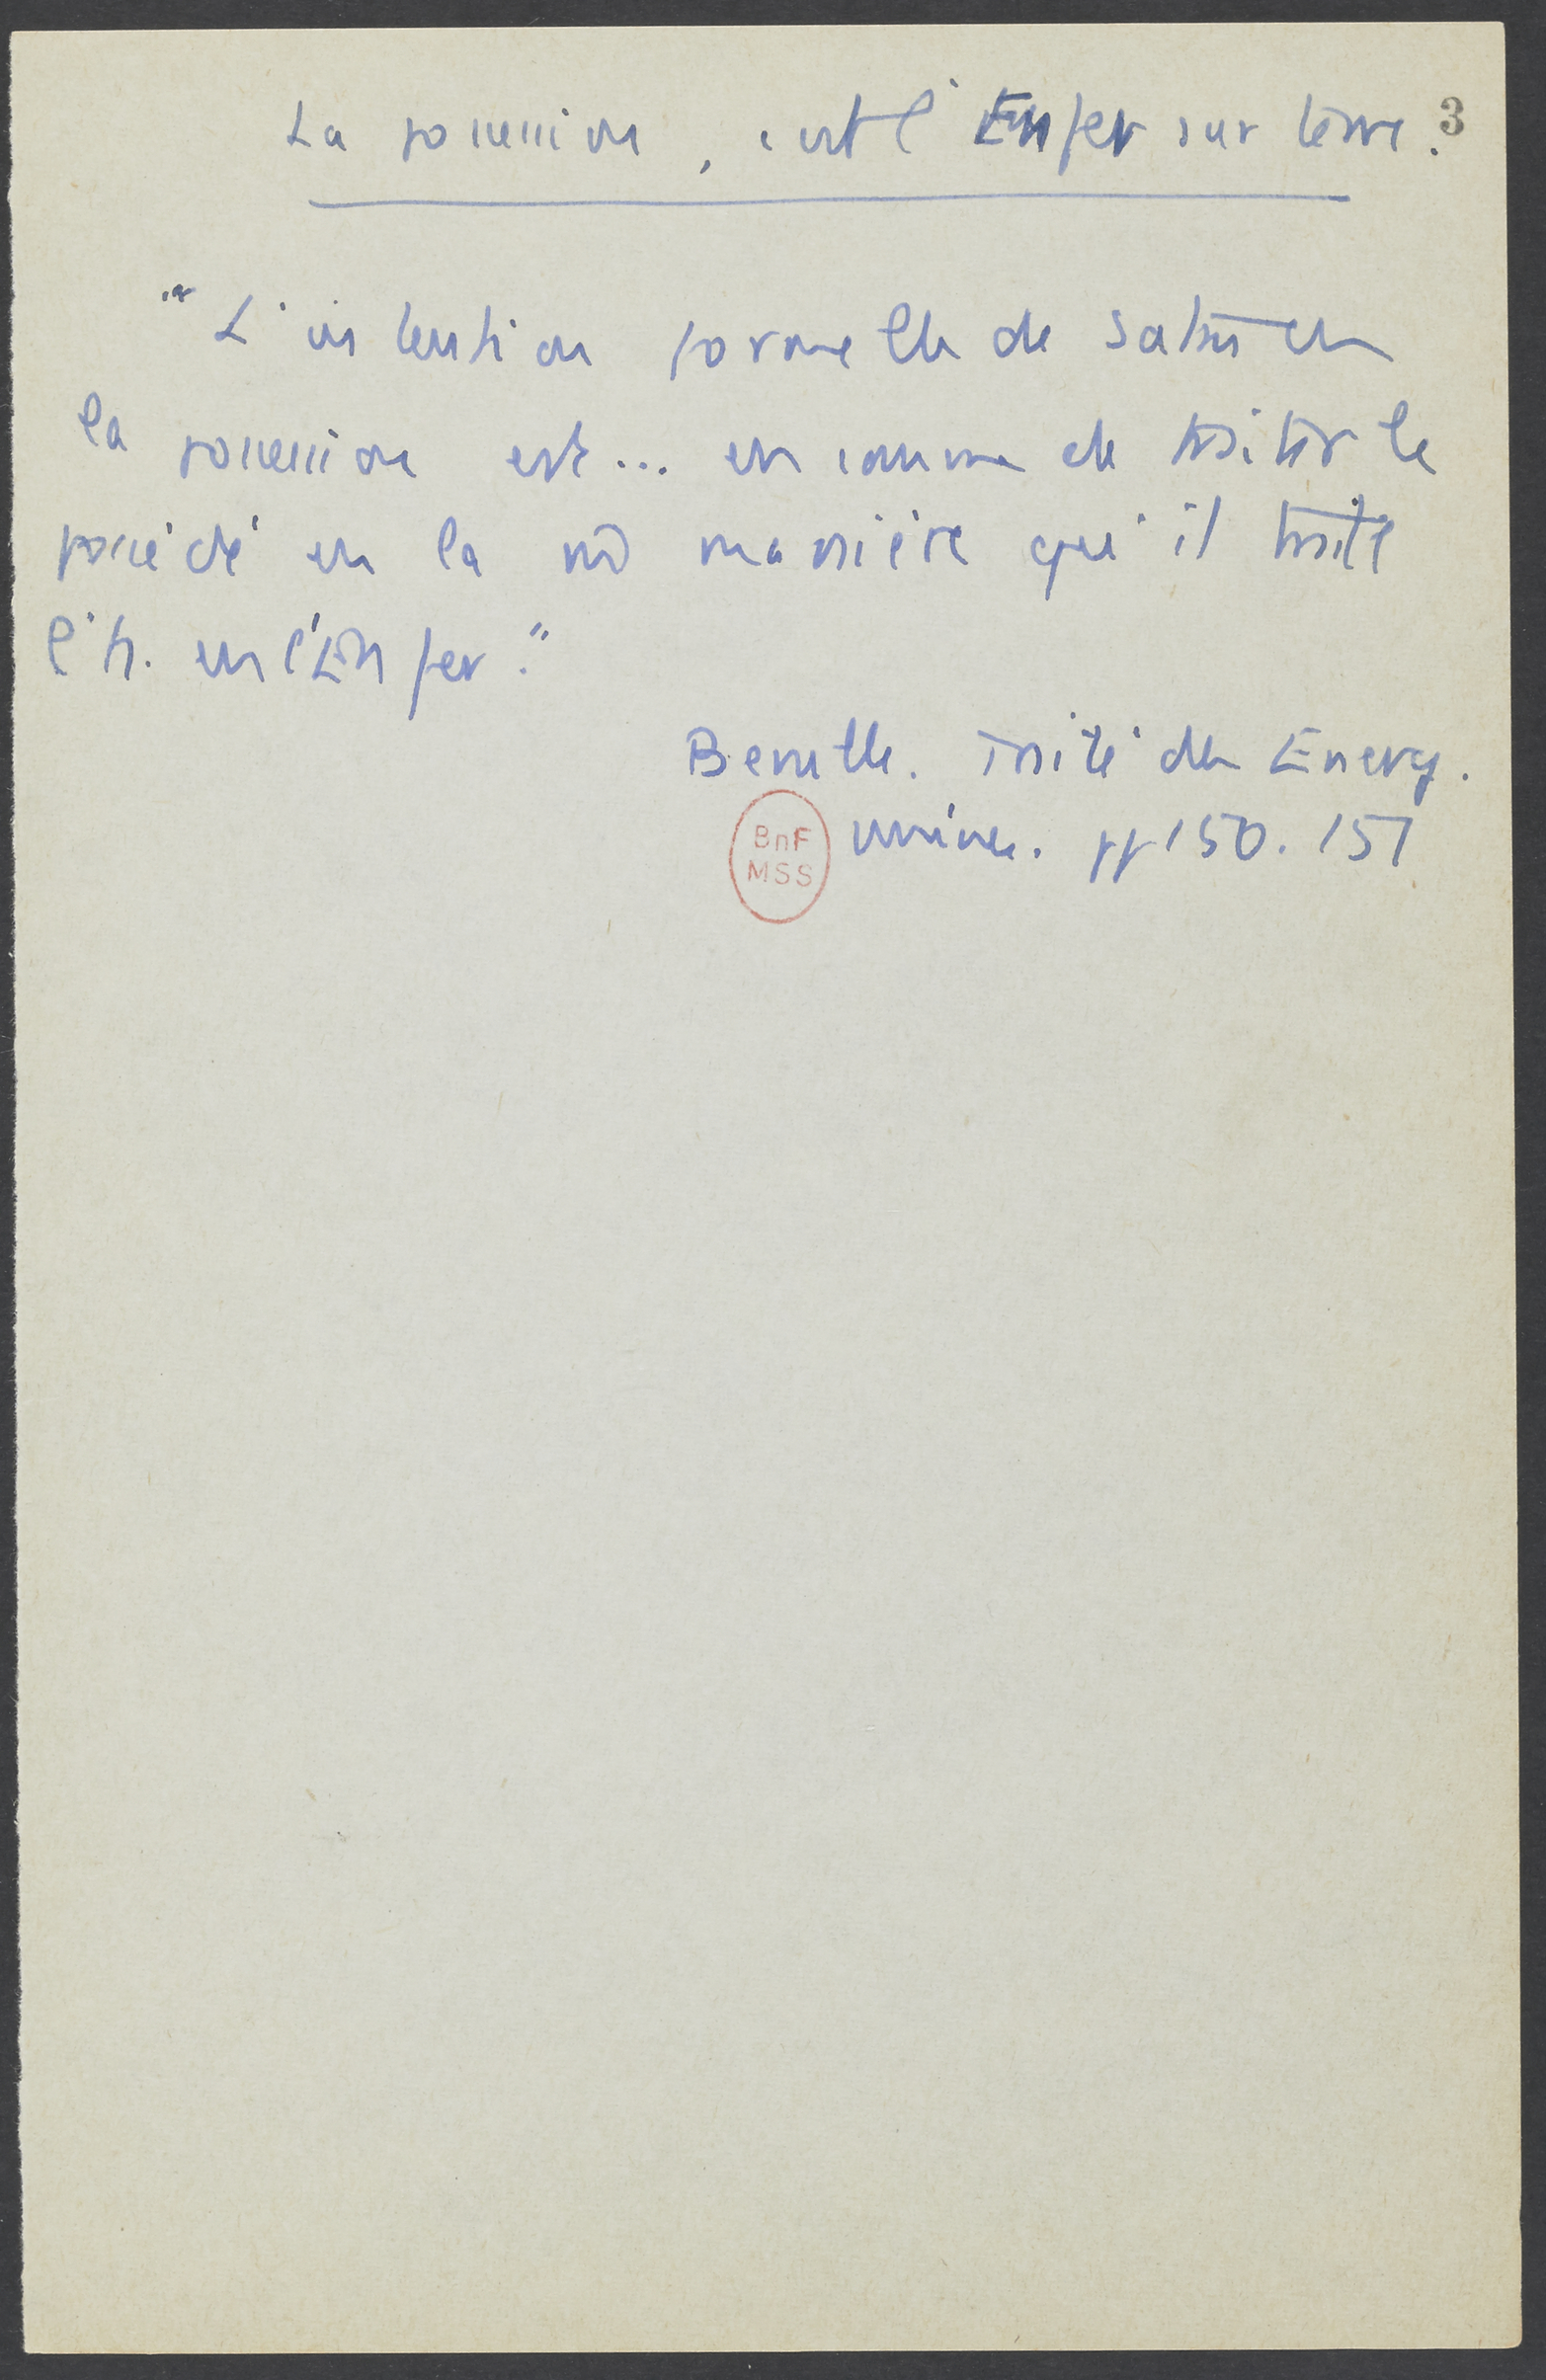 La possession, c'est l'Enfer sur terre. 3
"L'intention formelle de Satan en
la possession est... en somme de traiter le
possédé en la mê manière qu'il traite
l'h. en l'Enfer."
Berulle. Traité des Energ.
BnF MSS pp 150. 151